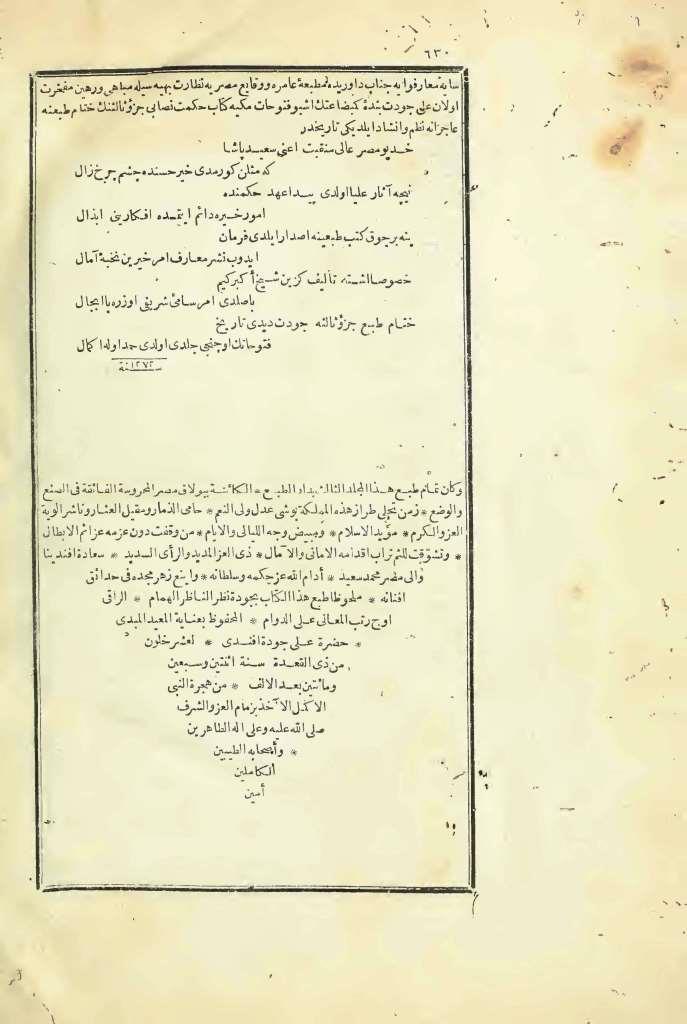 ٦٣٠
سايۀ معارفوايۀ جناب داوريده مطبعۀ عامره ووقايع مصريه نظارت بهيه سيله مباهى ورهين مفخرت
اولان على جودت بندۀ كم بضاعتك اشبو فتوحات مكيه كتاب حكمت نصابى جزؤ ثالثنك ختام طبعنه
عاجزانه نظم وانشاد ايلديكى تاريخدر
خديو مصر عالى منقبت اعنى سعيد پاشا
كه مثلن كورمدى خير حسنده چشم چرخ زال
نيچه آثار عليا اولدى پيدا عهد حكمنده
امور خيره دائم ايتمده افكارينى ابذال
ينه برچوق كتب طبعينه اصدار ايلدى فرمان
ايدوب نشر معارف امر خيرين نخبۀ آمال
خصوصا اشته تأليف كزين شيخ أكبر كيم
باصلدى امر سامئ شريفى اوزره با اجمال
ختام طبع جزؤ ثالثه جودت ديدى تاريخ
فتوحاتك اوچنجى جلدى اولدى حمد اوله اكمال
سنة ١٢٧٢
وكان تمام طبع هذا المجلد الثالث بدار الطبع * الكائنة ببولاق مصر المحروسة الفائقة فى الصنع
والوضع * زمن تحلى طراز هذه المملكة بوشى عدل ولى النعم * حامى الذمار ومقيل العثار وناشر ألوية
العز والكرم * مؤيد الاسلام * ومبيض وجه الليالى والايام * من وقفت دون عزمه عزائم الابطال
* وتشوّقت للثم تراب اقدامه الامانى والآمال * ذى العز المديد والرأى السديد * سعادة افندينا
والى مصر محمد سعيد * أدام الله عز حكمه وسلطانه * واينع زهر مجده فى حدائق
افنانه * ملحوظا طبع هذا الكتاب بجودة نظر الناظر الهمام * الراقى
اوج رتب المعانى على الدوام * المحفوظ بعناية المعيد المبدى
* حضرة على جودة افندى * لعشر خلون
من ذى القعدة سنة اثنتين وسبعين
ومائتين بعد الالف * من هجرة النبى
الاكمل الآخذ بزمام العز والشرف
صلى الله عليه وعلى اله الطاهرين
* وأصحابه الطيبين
الكاملين
أمين